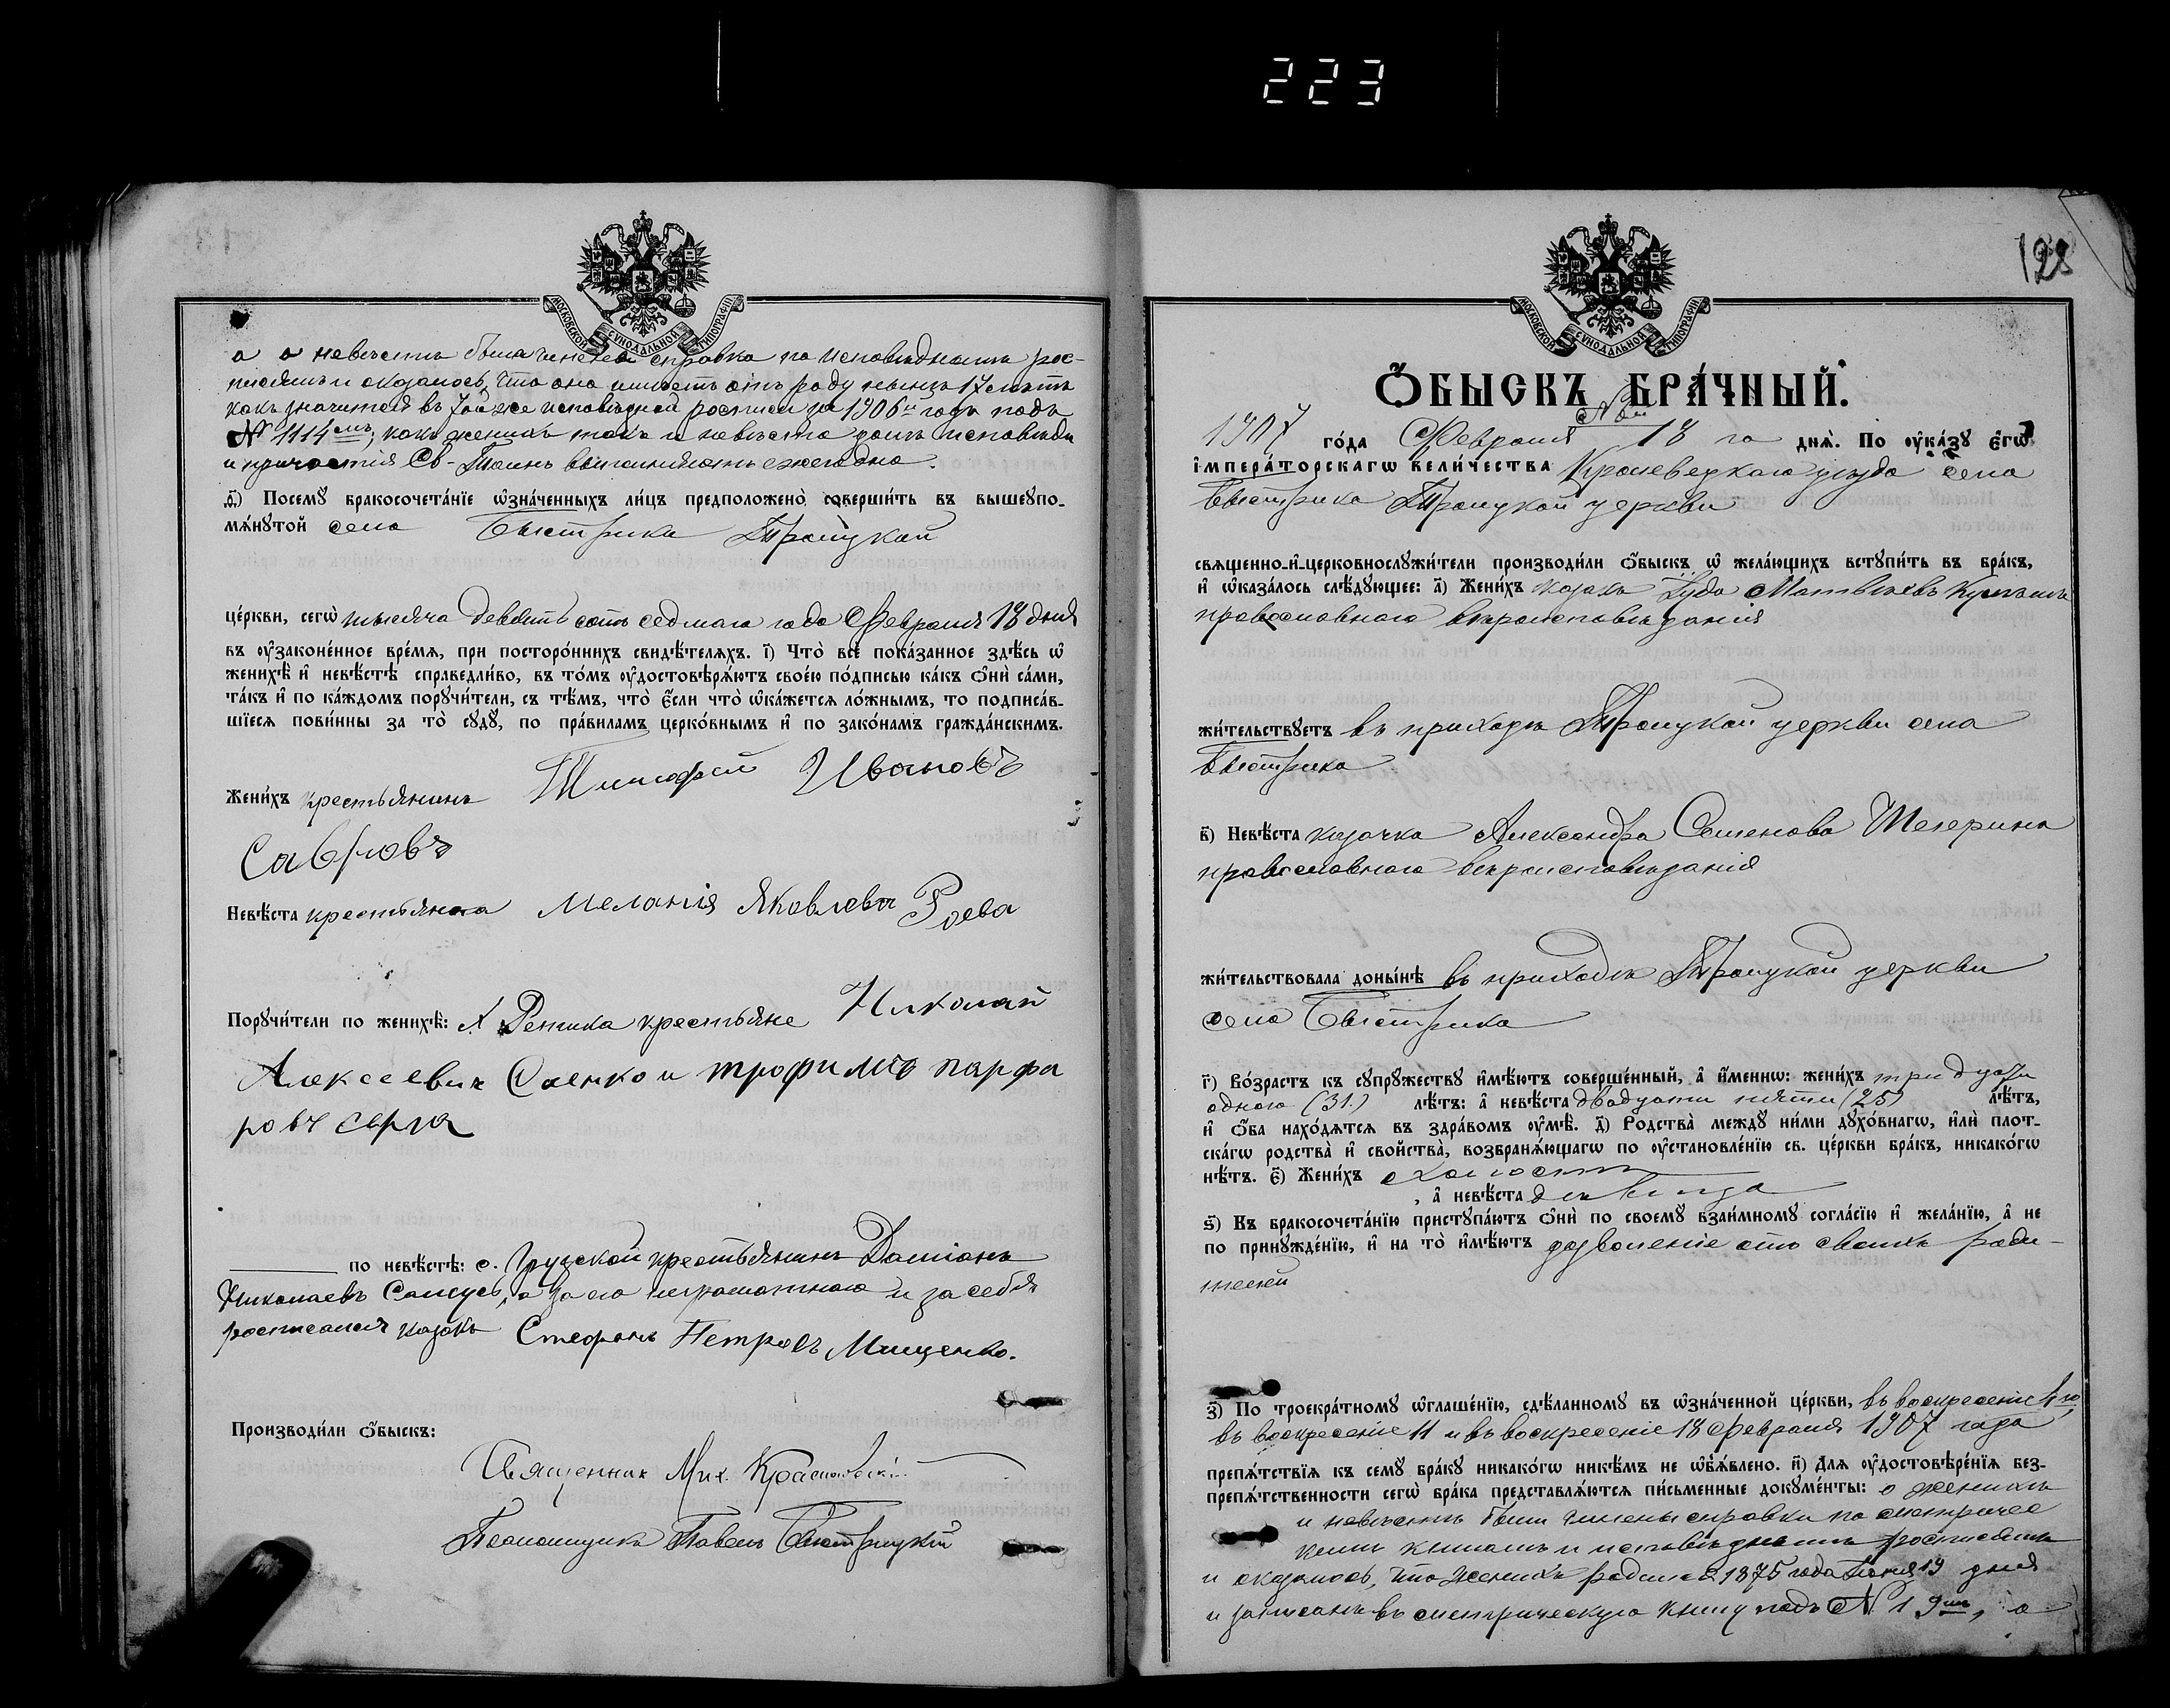 223
МОСКОВСКОЙ СѴНОДАЛЬНОЙ ТИПОГРАФІИ
а о невѣстѣ была чинена справка по исповѣднымъ рос-
писямъ и оказалось, что она имѣетъ отъ роду нынѣ 17 лѣтъ
какъ значится въ той же исповѣдной росписи за 1906й годъ подъ
№ 1114мъ; какъ женихъ такъ и невѣста долгъ исповѣди
и причастія Св. Таинъ выполняютъ ежегодно.
ѳ҃) Посемꙋ бракосочета́нїе ѡ҆зна́ченныхъ ли́цъ предположено̀ соверши́ть въ вышеꙋпо-
мѧ́нꙋтой села Быстрика Троицкой
це́ркви, сегѡ̀ тысяча девятьсотъ седмаго года Февраля 18 дня
въ ᲂу҆законе́нное вре́мѧ, при посторо́ннихъ свидѣ́телѧхъ. і҃) Что̀ всѐ пока́занное здѣ́сь ѡ҆
женихѣ̀ и҆ невѣ́стѣ справедли́во, въ то́мъ ᲂу҆достовѣрѧ́ютъ свое́ю по́дписью ка́къ ѻ҆нѝ са́ми,
та́къ и҆ по ка́ждомъ порꙋчи́тели, съ тѣ́мъ, что̀ є҆́сли что̀ ѡ҆ка́жетсѧ ло́жнымъ, то подписа́в-
шїесѧ пови́нны за то̀ сꙋдꙋ̀, по пра́виламъ церко́внымъ и҆ по зако́намъ гражда́нскимъ.
Жени́хъ крестьянинъ Тимофей Ивановъ
Невѣ́ста крестьянка Меланія Яковлева Роева
Порꙋчи́тели по женихѣ̀: крестьяне Николай
Алексеевич Саенко и трофимъ парфи
ровъ
по невѣ́стѣ: с. Грузской крестьянинъ Даміанъ
Николаевъ Самусь, а за его неграмотнаго и за себя
росписался казакъ Стефанъ Петровъ Мищенко.
Производи́ли ѻ҆́быскъ:
Священникъ Мих. Красновскій
Псаломщикъ Павелъ Быстрицкій
МОСКОВСКОЙ СѴНОДАЛЬНОЙ ТИПОГРАФІИ
128
Ѻ҆́БЫСКЪ БРА́ЧНЫЙ.
№
1907 го́да Февраля 18 го днѧ̀. По ᲂу҆ка́зꙋ є҆гѡ̀
і҆мпера́торскагѡ вели́чества Кролевецкаго уѣзда села
Быстрика Троицкой церкви
свѧщенно-и҆-церковнослꙋжи́тели производи́ли ѻ҆́быскъ ѡ҆ жела́ющихъ встꙋпи́ть въ бра́къ,
и҆ ѡ҆каза́лось слѣ́дꙋющее: а҃) Жени́хъ казакъ Іуда Матвѣевъ
православнаго вѣроисповѣданія
жи́тельствꙋетъ въ приходѣ Троицкой церкви села
Быстрика
в҃) Невѣ́ста казачка Александра Семенова
православнаго вѣроисповѣданія
жи́тельствовала доны́нѣ въ приходѣ Троицкой церкви
села Быстрика
г҃) Во́зрастъ къ сꙋпрꙋ́жествꙋ и҆мѣ́ютъ соверше́нный, а҆ и҆́меннѡ: жени́хъ тридцати
одного (31.) лѣ́тъ: а҆ невѣ́ста двадцати пяти (25) лѣ́тъ,
и҆ ѻ҆́ба нахо́дѧтсѧ въ здра́вомъ ᲂу҆мѣ̀. д҃) Родства̀ междꙋ ни́ми дꙋхо́внагѡ, и҆лѝ плот-
ска́гѡ родства̀ и҆ сво́йства̀, возбранѧ́ющагѡ по ᲂу҆становле́нїю св. це́ркви бра́къ, никако́гѡ
нѣ́тъ. є҃) Жени́хъ холостъ
, а҆ невѣ́ста девица
ѕ҃) Къ бракосочета́нїю пристꙋпа́ютъ ѻ҆нѝ по своемꙋ̀ взаи́мномꙋ согла́сїю и҆ жела́нїю, а҆ не
по принꙋжде́нїю, и҆ на то̀ и҆мѣ́ютъ дозволеніе отъ своихъ роди-
телей
з҃) По троекра́тномꙋ ѡ҆глаше́нїю, сдѣ́ланномꙋ въ ѡ҆зна́ченной це́ркви, въ воскресеніе 4го,
въ воскресеніе 11 и въ воскресеніе 18 Февраля 1907 года
препѧ́тствїѧ къ семꙋ̀ бра́кꙋ никако́гѡ никѣ́мъ не ѡ҆б̾ѧ́влено. и҃) Длѧ ᲂу҆достовѣре́нїѧ без-
препѧ́тственности сегѡ̀ бра́ка представлѧ́ютсѧ пи́сьменные докꙋме́нты: о женихѣ
и невѣстѣ были чинены справки по метриче
кимъ книгамъ и исповѣднымъ росписямъ
и оказалось, что женихъ родился 1875 года 19 дня
и записанъ въ метрическую книгу подъ № 19мъ, а